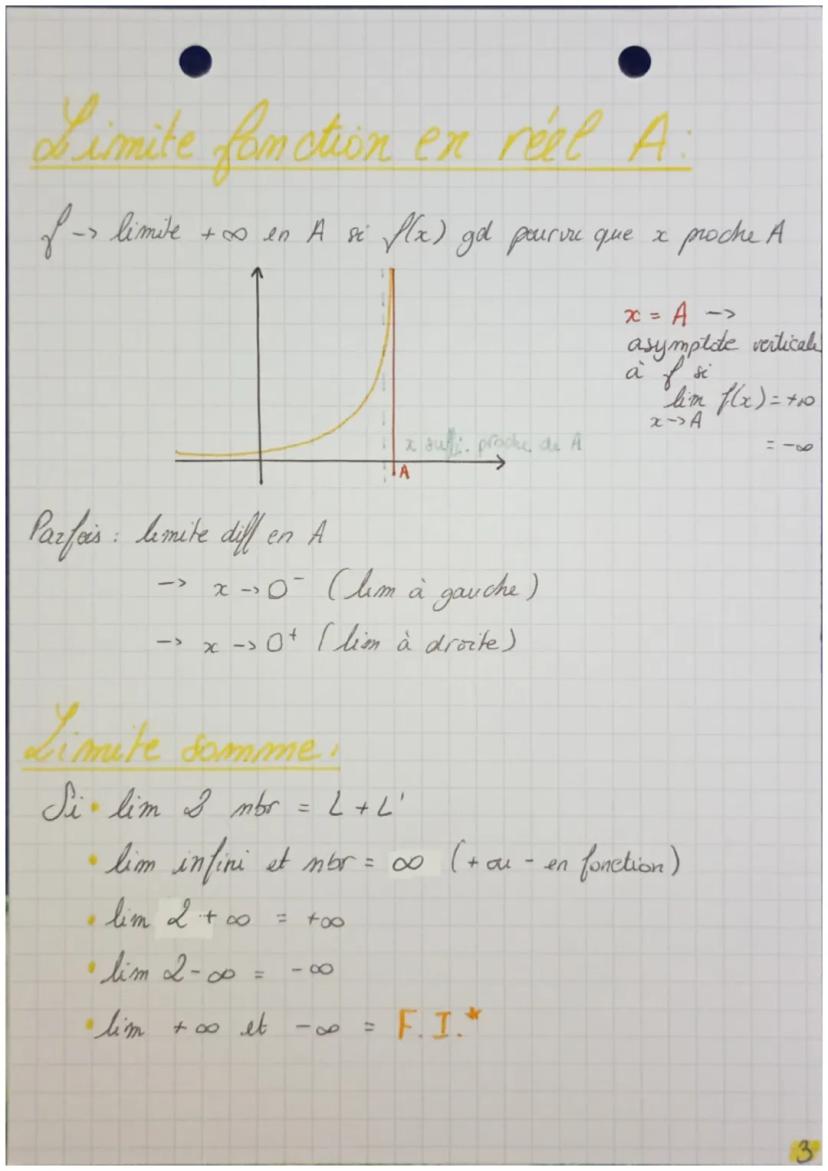 Limite fonction en réel A:
f -> limite +∞ en A si f(x) gd pourvu que x proche A
x = A ->
asymptote verticale
à f si
lim f(x) = +∞
x->A
= -∞
x suffi. proche de A
A
Parfois : limite diff en A
-> x -> 0⁻ (lim à gauche)
-> x -> 0⁺ (lim à droite)
Limite somme:
Si • lim 2 nbr = L + L'
• lim infini et nbr = ∞ (+ ou - en fonction)
• lim 2 +∞ = +∞
• lim 2 -∞ = -∞
• lim +∞ et -∞ = F.I.*
3